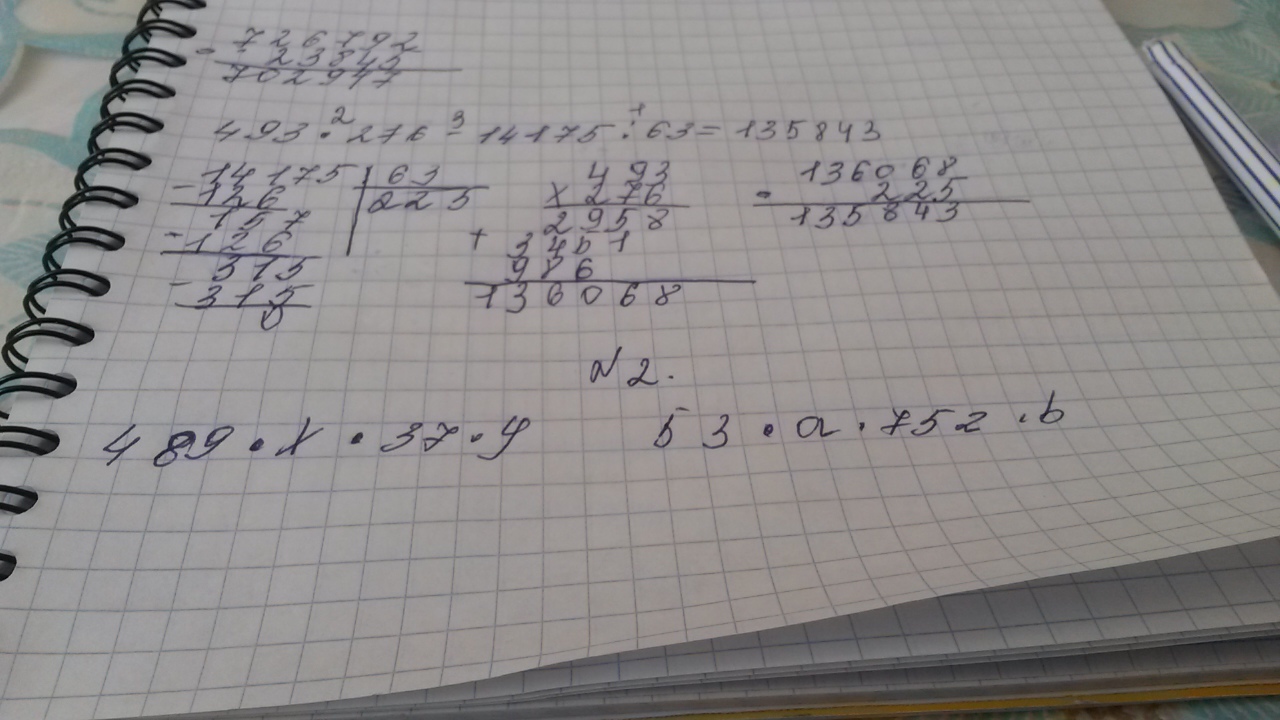 - 726792
23845
702947
493 · 276 - 14175 : 63 = 135843
2 3 1
- 14175 | 63
126 | 225
- 157
126
- 315
315
0
× 493
276
+ 2958
3451
986
136068
- 136068
225
135843
№2.
489 · x · 37 · y
53 · a · 752 · b